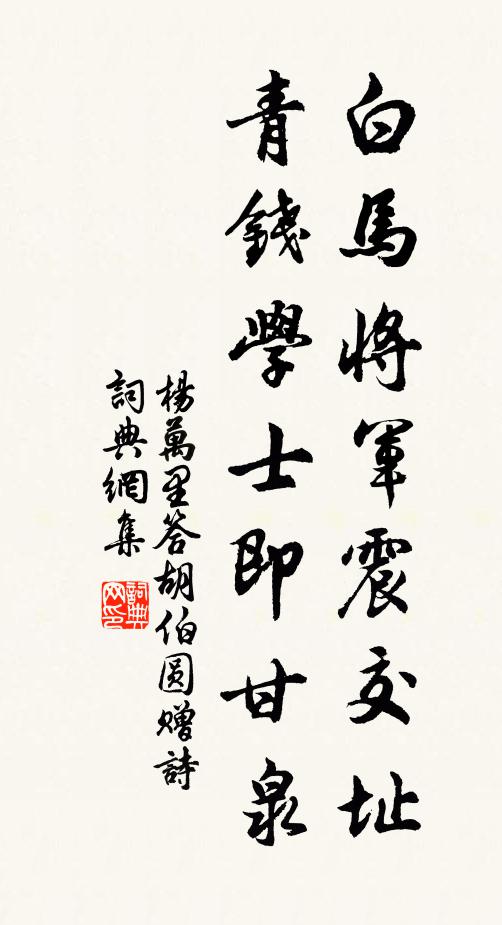 白馬將軍震交址
青錢學士即甘泉
楊萬里答胡伯圓贈詩
詞典網集
詞典网印